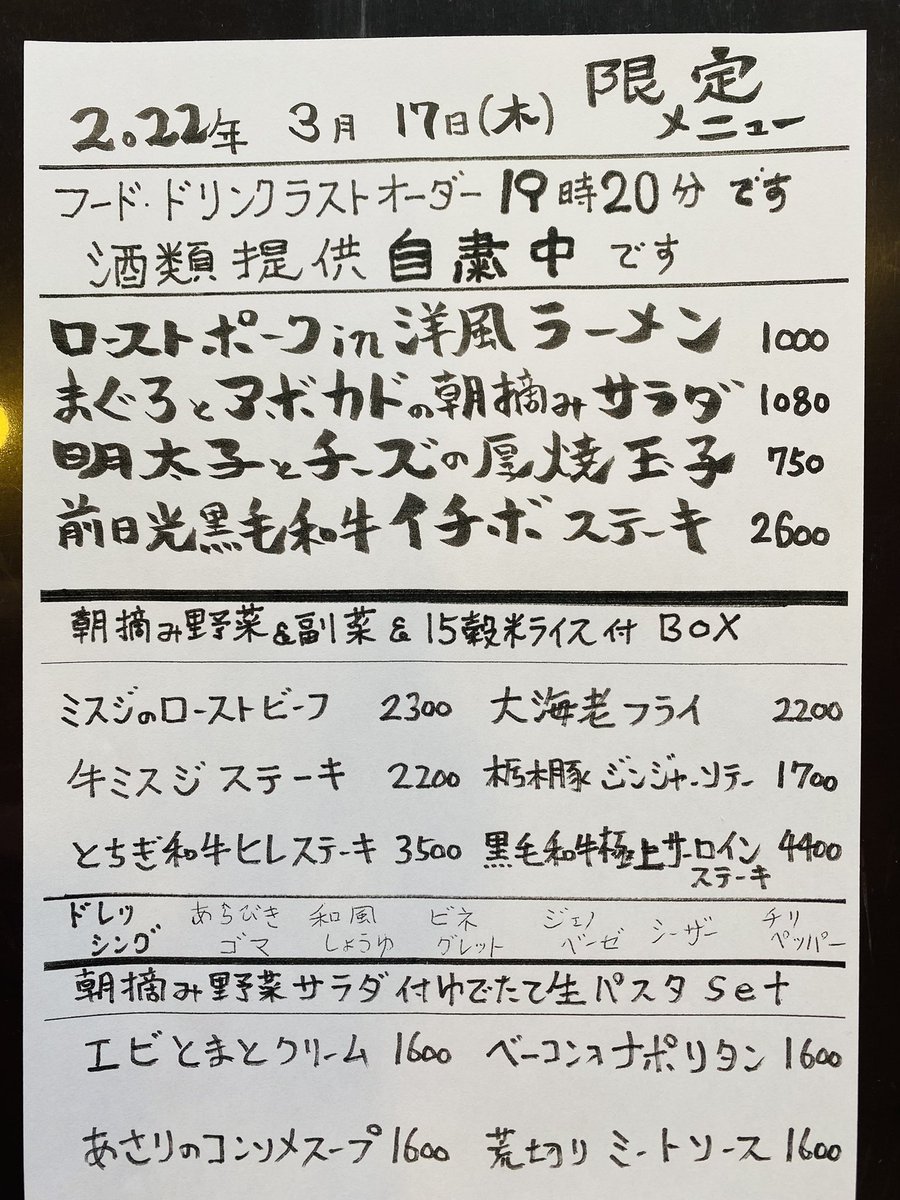 2022年 3月 17日(木) 限定メニュー
フード・ドリンクラストオーダー 19時20分 です
酒類提供 自粛中 です
ローストポークin洋風ラーメン 1000
まぐろとアボカドの朝摘みサラダ 1080
明太子とチーズの厚焼玉子 750
前日光黒毛和牛イチボステーキ 2600
朝摘み野菜&副菜&15穀米ライス付 BOX
ミスジのローストビーフ 2300 大海老フライ 2200
牛ミスジステーキ 2200 栃木豚ジンジャーソテー 1700
とちぎ和牛ヒレステーキ 3500 黒毛和牛極上サーロインステーキ 4400
ドレッシング あらびきゴマ 和風しょうゆ ビネグレット ジェノベーゼ シーザー チリペッパー
朝摘み野菜サラダ付ゆでたて生パスタ set
エビとまとクリーム 1600 ベーコンナポリタン 1600
あさりのコンソメスープ 1600 荒切りミートソース 1600